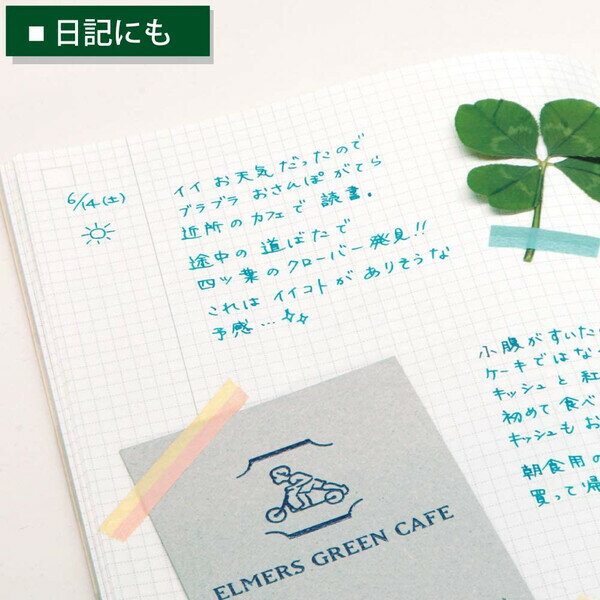 ■ 日記にも
6/14(土)
イイ お天気だったので
ブラブラ おさんぽがてら
近所のカフェで 読書。
途中の 道ばたで
四ツ葉のクローバー発見!!
これは イイコトが ありそうな
予感…
小腹がすいた
ケーキではな
キッシュと 紅
初めて 食べ
キッシュも お
朝食用の
買って帰
ELMERS GREEN CAFE